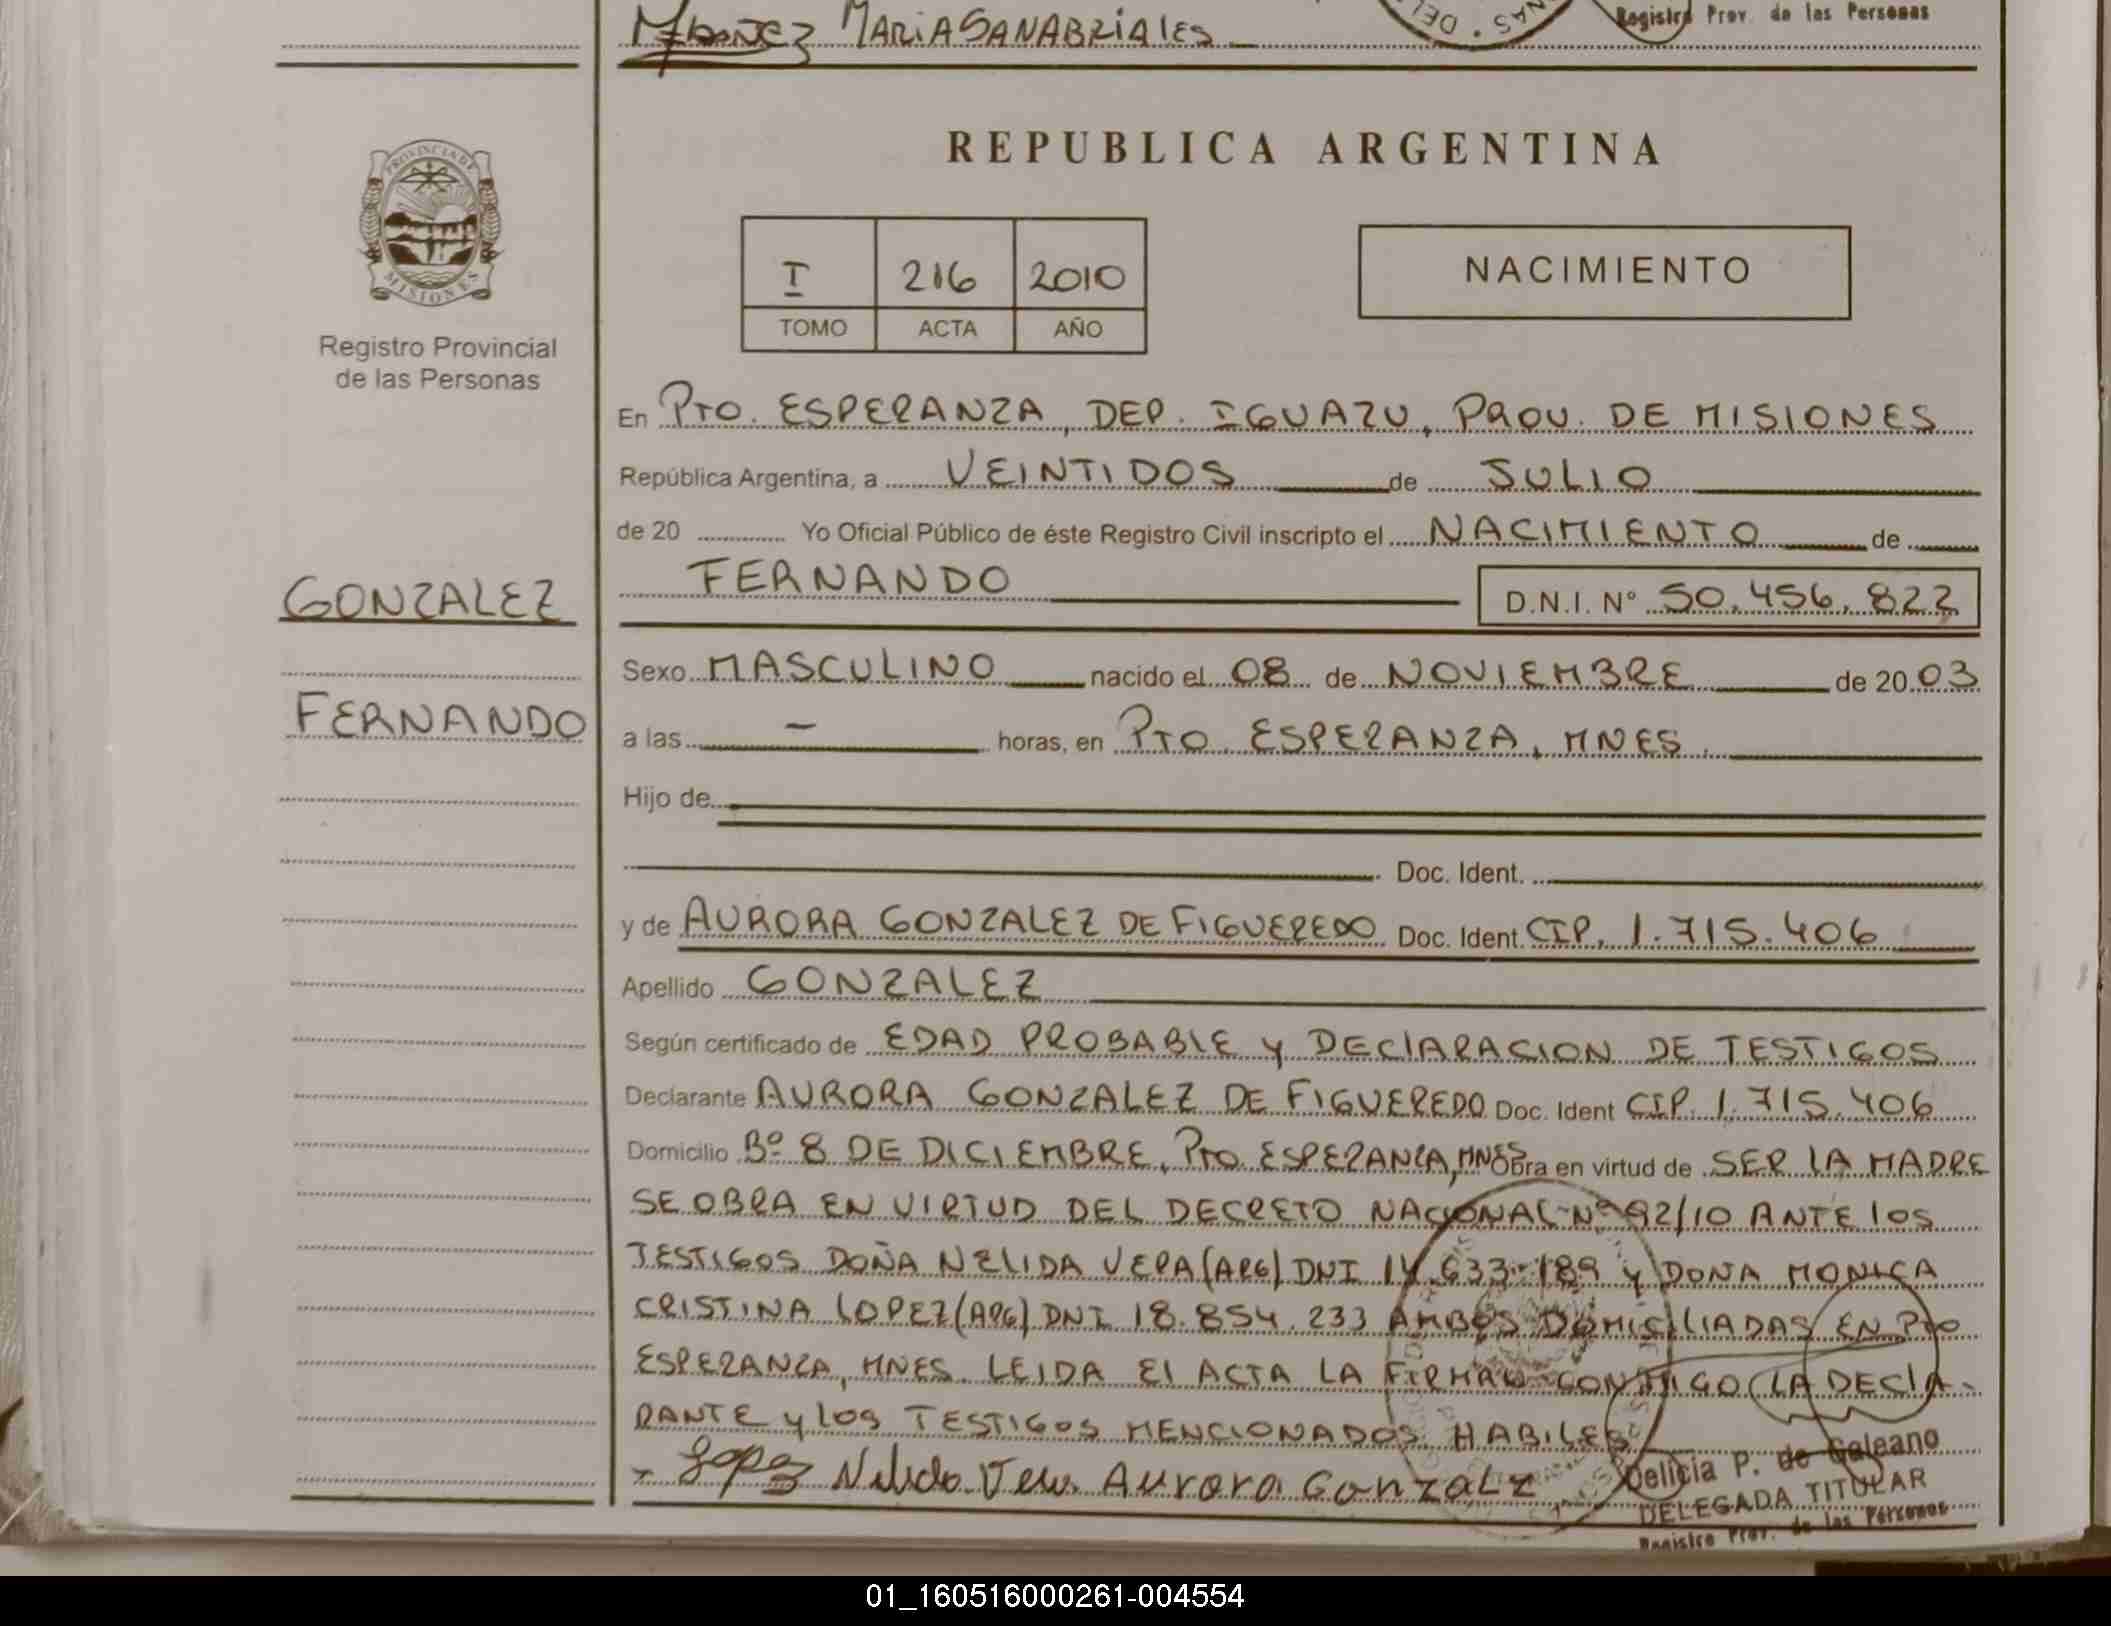 MARIA SANABRIA LES
Registro Prov. de las Personas
REPUBLICA ARGENTINA
PROVINCIA DE
MISIONES
Registro Provincial
de las Personas
I 216 2010
TOMO ACTA AÑO
NACIMIENTO
En PTO. ESPERANZA, DEP. IGUAZU, PROV. DE MISIONES
República Argentina, a VEINTIDOS de JULIO
de 20 Yo Oficial Público de éste Registro Civil inscripto el NACIMIENTO de
FERNANDO D.N.I. Nº 50.456.822
GONZALEZ
FERNANDO
Sexo MASCULINO nacido el 08 de NOVIEMBRE de 2003
a las - horas, en PTO ESPERANZA, MNES.
Hijo de
Doc. Ident.
y de AURORA GONZALEZ DE FIGUEREDO Doc. Ident. CIP. 1.715.406
Apellido GONZALEZ
Según certificado de EDAD PROBABLE y DEClARACION DE TESTIGOS
Declarante AURORA GONZALEZ DE FIGUEREDO Doc. Ident CIP. 1.715.406
Domicilio Bº 8 DE DICIEMBRE, PTO ESPERANZA, MNES Obra en virtud de SER LA MADRE
SE OBRA EN VIRTUD DEL DECRETO NACIONAL Nº 92/10 ANTE los
TESTIGOS DOÑA NELIDA VERA (ARG) DNI 14.633.189 y DONA MONICA
CRISTINA LOPEZ (ARG) DNI 18.854.233 AMBOS DOMICILIADAS EN PTO
ESPERANZA, MNES. LEIDA El ACTA LA FIRMAN CONMIGO LA DEClA-
RANTE y LOS TESTIGOS MENCIONADOS HABILES
Lopez Nelida Vera Aurora Gonzalz
Delicia P. de Galeano
DELEGADA TITULAR
Registro Prov. de las Personas
01_160516000261-004554